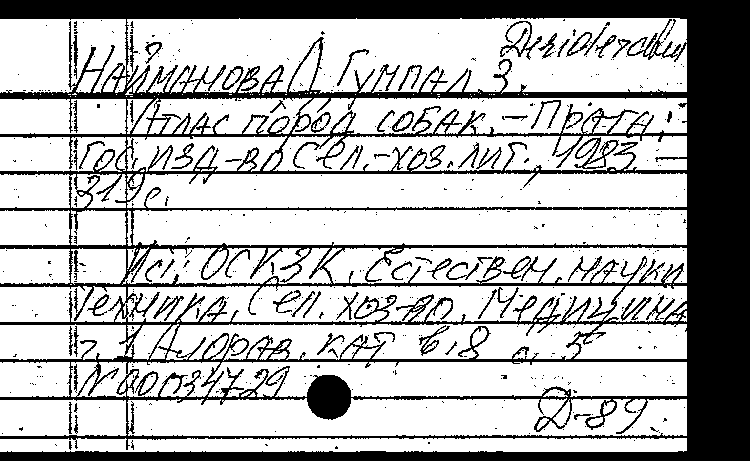 Desiderata
Найманова Д, Гумпал З.
Атлас пород собак. - Прага:
Гос. изд-во сел.-хоз. лит., 1983. -
319 с.
Ист: ОСКЗК. Естествен. науки
Техника. Сел. хоз-во. Медицина
т. 1 Алфав. кат в.8 с. 5
N a00034729
Д-89